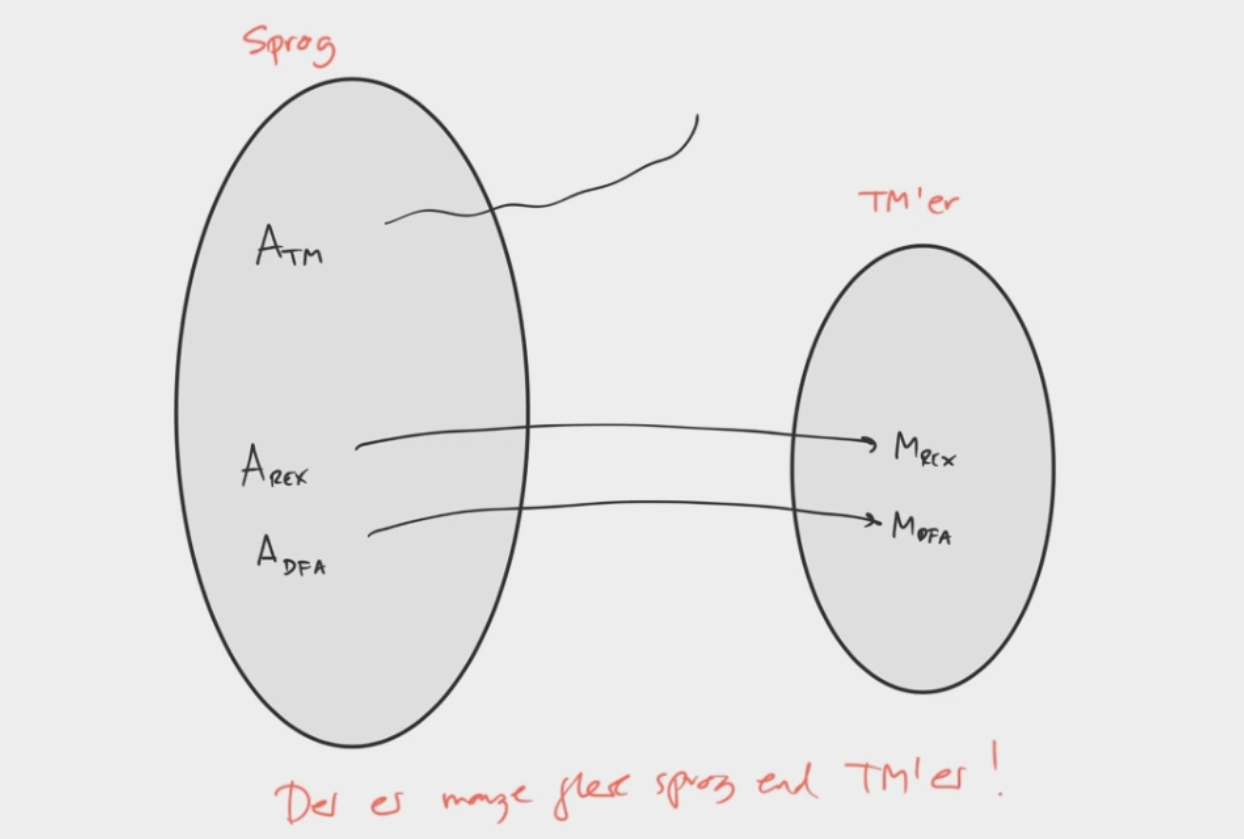 Sprog
TM'er
A_TM
A_REX
M_REX
A_DFA
M_DFA
Der er mange flere sprog end TM'er!